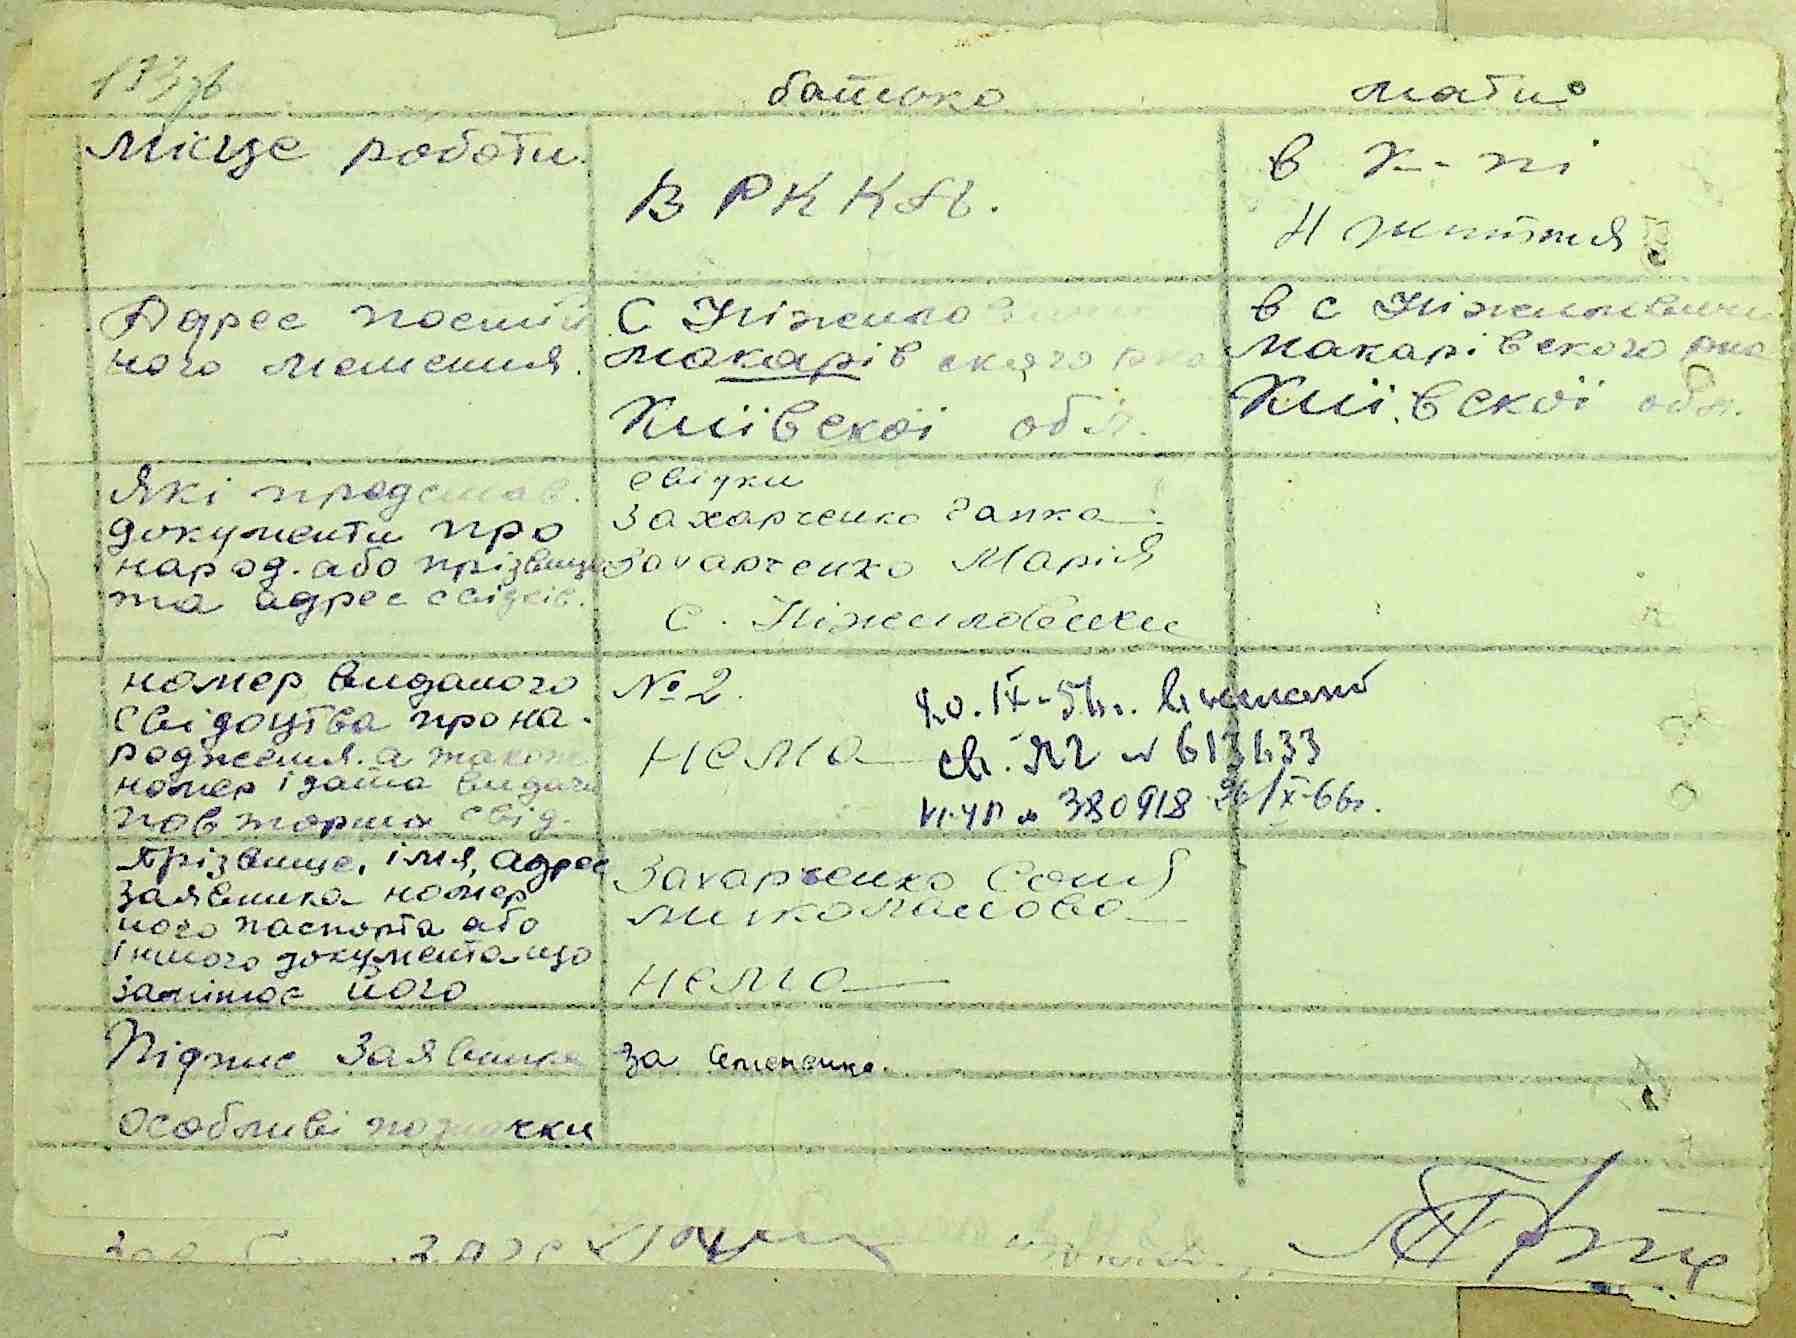 батько мати
Місце роботи.
В РККА.
в к-пі
Н життя
Адрес постій
ного мешення.
С Ніжиловичи
Макарівского рна
Київскої обл.
в с Ніжиловичи
Макарівского рна
Київскої обл.
Які представ.
документи про
народ. або прізвище
та адрес свідків.
свідки
Захарченко Гапка
Захарченко Марія
с. Ніжиловички
номер виданого
свідоцтва про на-
родження. а також
номер і дата видачі
повторна свід.
№ 2.
нема
св. № 613633
№ 380918 26/X-66г.
Прізвище, імя, адрес
заявника номер
його паспорта або
іншого документа що
замінює його
Захарченко Соня
Миколаєвна
нема
Підпис Заявника
за Семененко.
Особливі помітки